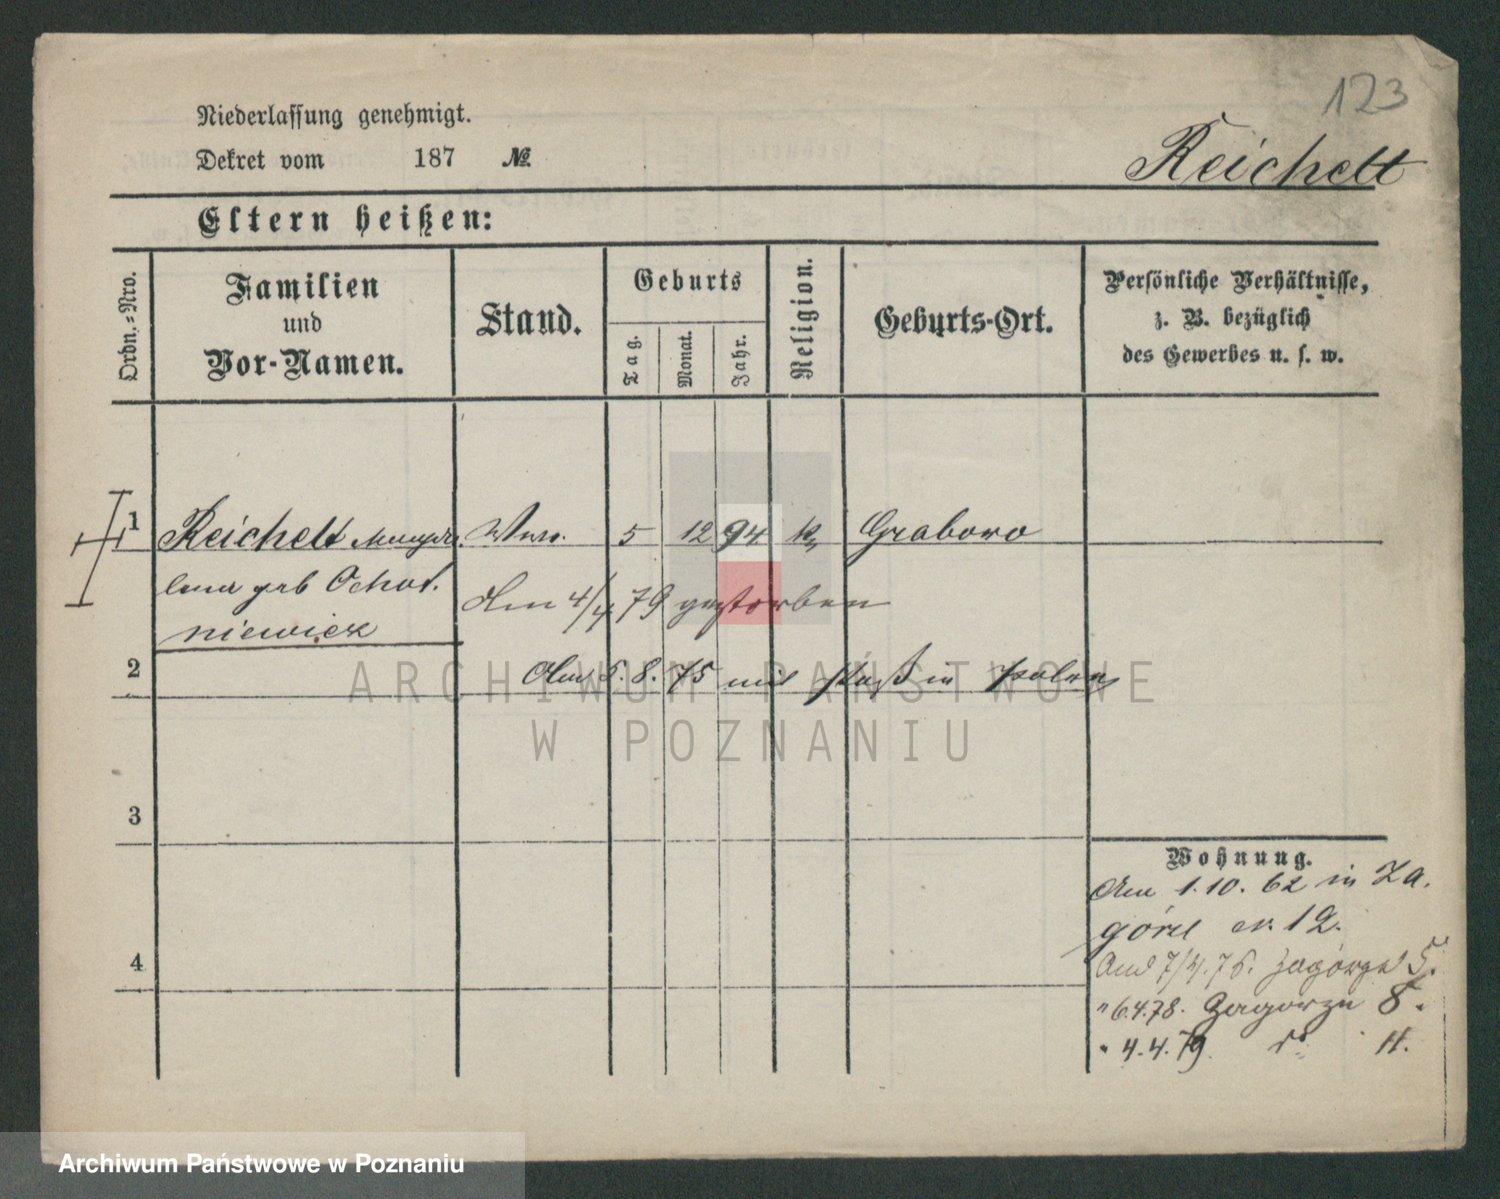 123
Niederlassung genehmigt.
Dekret vom 187 №
Reichelt
Eltern heißen:
Ordn.-Nro.
Familien und Vor-Namen.
Stand.
Geburts
Tag.
Monat.
Jahr.
Religion.
Geburts-Ort.
Persönliche Verhältnisse,
z. B. bezüglich
des Gewerbes u. s. w.
1 Reichelt 5 12 94 Grabowo
geb Ochot.
niewicz
4/4 79 gestorben
2
8. 75 mit Paß in Polen
3
4
Wohnung.
Am 1.10. 62 in Za.
górze 12.
7/4. 76. Zagórze 5.
" 6.4.78. Zagorze 8.
" 4.4.79. 11.
ARCHIWUM PAŃSTWOWE
W POZNANIU
Archiwum Państwowe w Poznaniu